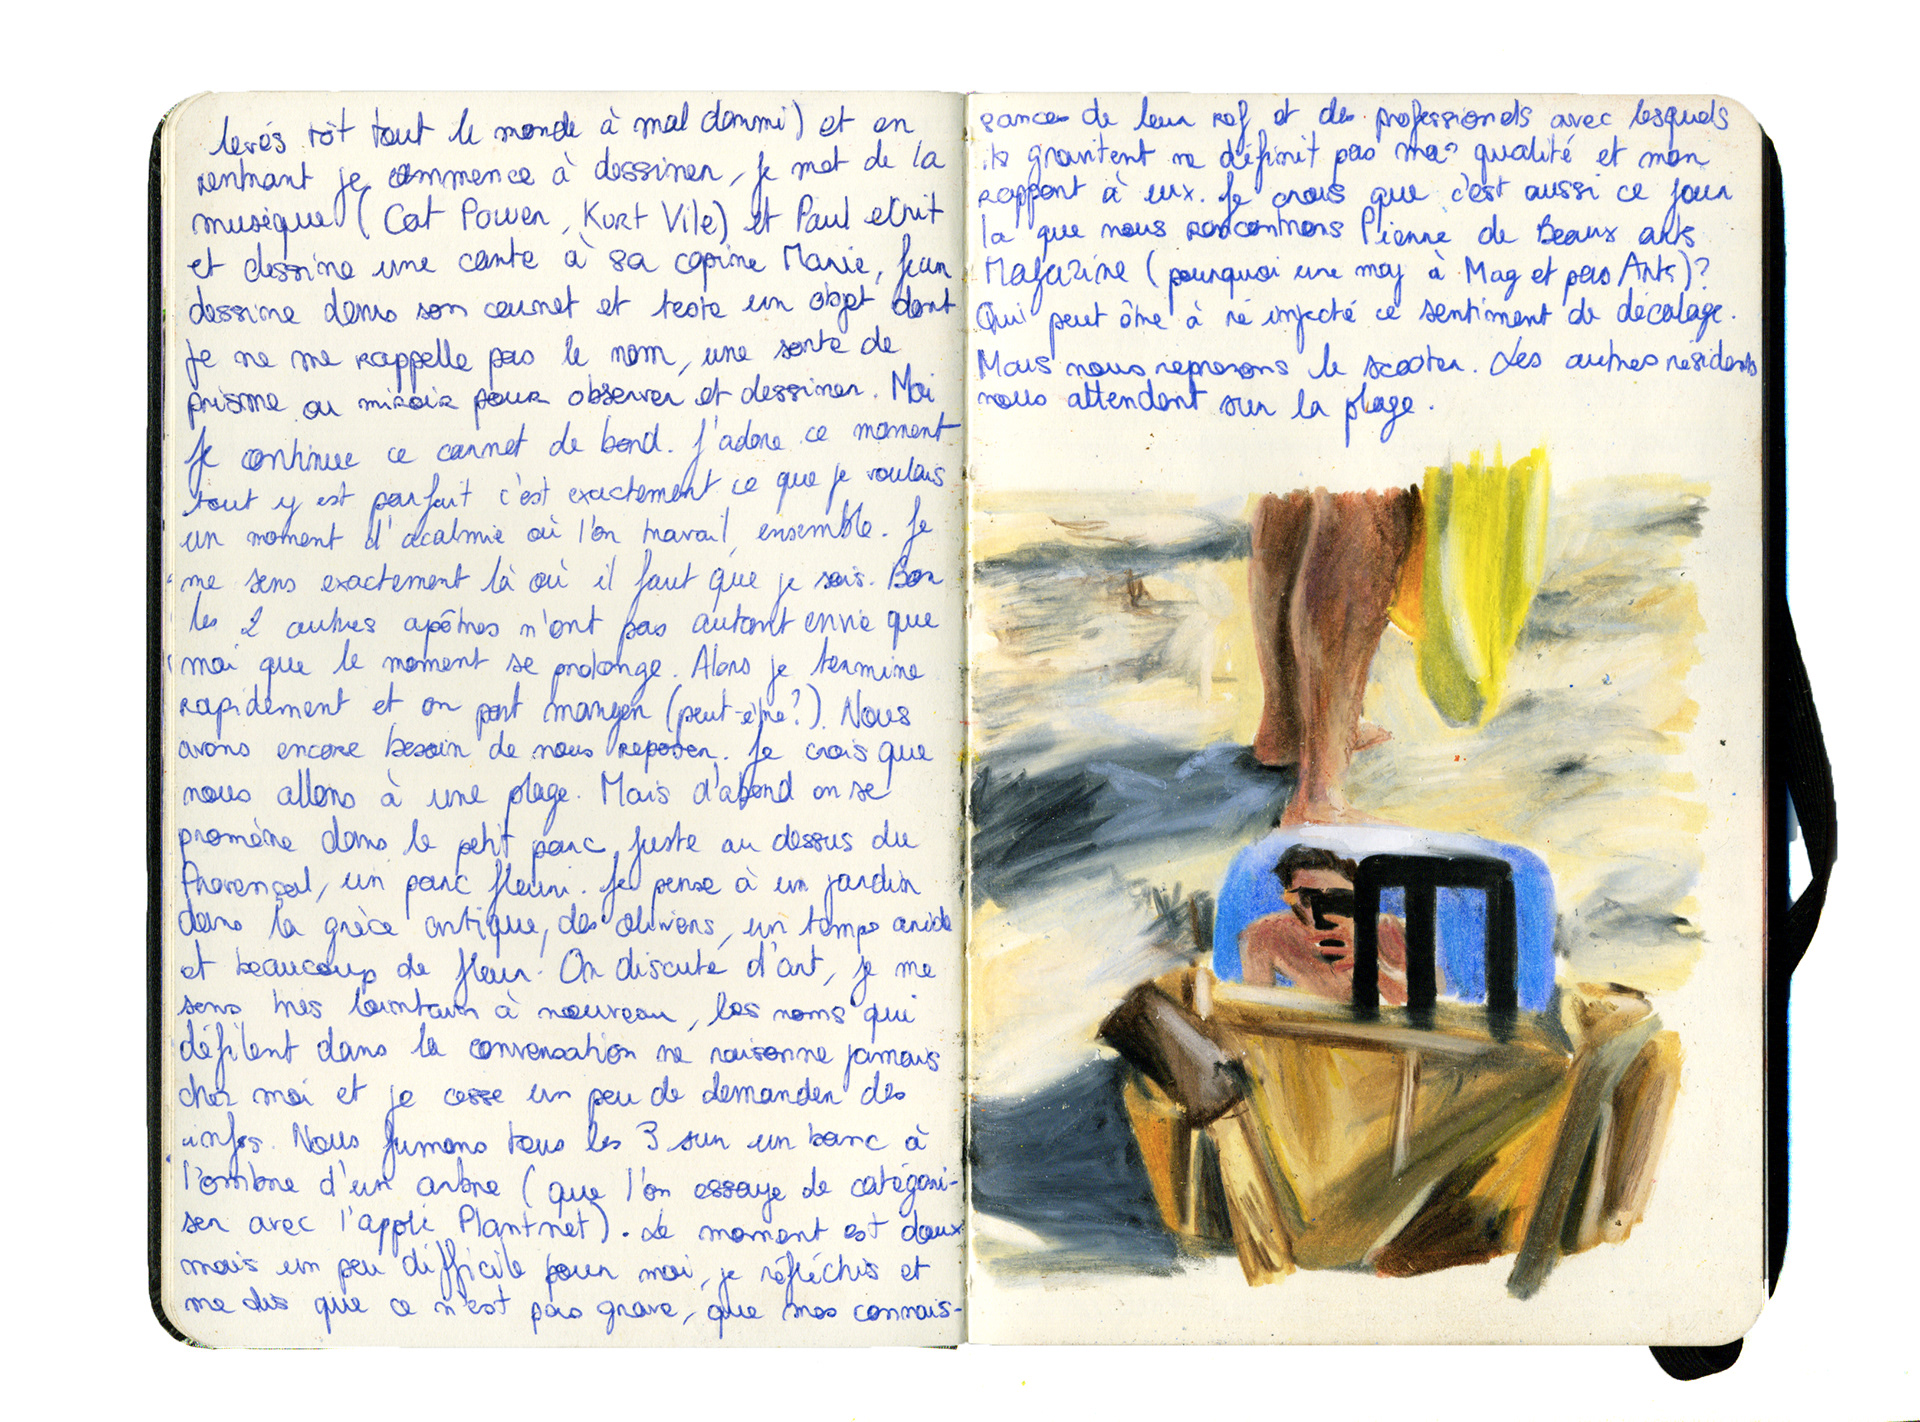 levés tôt tout le monde à mal dormi) et en
rentrant je commence à dessiner, je met de la
musique (Cat Power, Kurt Vile) et Paul ecrit
et dessine une carte à sa copine Marie, Jean
dessine dans son carnet et teste un objet dont
je ne me rappelle pas le nom, une sorte de
prisme ou miroir pour observer et dessiner. Moi
je continue ce carnet de bord. J'adore ce moment
tout y est parfait c'est exactement ce que je voulais
un moment d'acalmie où l'on travail ensemble. Je
me sens exactement là où il faut que je sois. Bon
les 2 autres apôtres n'ont pas autant envie que
moi que le moment se prolonge. Alors je termine
rapidement et on part manger (peut-être?). Nous
avons encore besoin de nous reposer. Je crois que
nous allons à une plage. Mais d'abord on se
promène dans le petit parc juste au dessus du
Provençal, un parc fleuri. Je pense à un jardin
dans la grèce antique, des oliviers, un temps aride
et beaucoup de fleur. On discute d'art, je me
sens très lointain à nouveau, les noms qui
défilent dans la conversation ne raisonne jamais
chez moi et je cesse un peu de demander des
infos. Nous fumons tous les 3 sur un banc à
l'ombre d'un arbre (que l'on essaye de catégori-
ser avec l'appli Plantnet). Le moment est doux
mais un peu difficile pour moi, je réfléchis et
me dis que ce n'est pas grave, que mes connais-
sances de leur ref et des professionels avec lesquels
ils gravitent ne définit pas mes qualité et mon
rapport à eux. Je crois que c'est aussi ce jour
la que nous rencontrons Pierre de Beaux arts
Magazine (pourquoi une maj à Mag et pas Arts)?
Qui peut être à ré injecté ce sentiment de décalage.
Mais nous reprenons le scooter. Les autres résidents
nous attendent sur la plage.